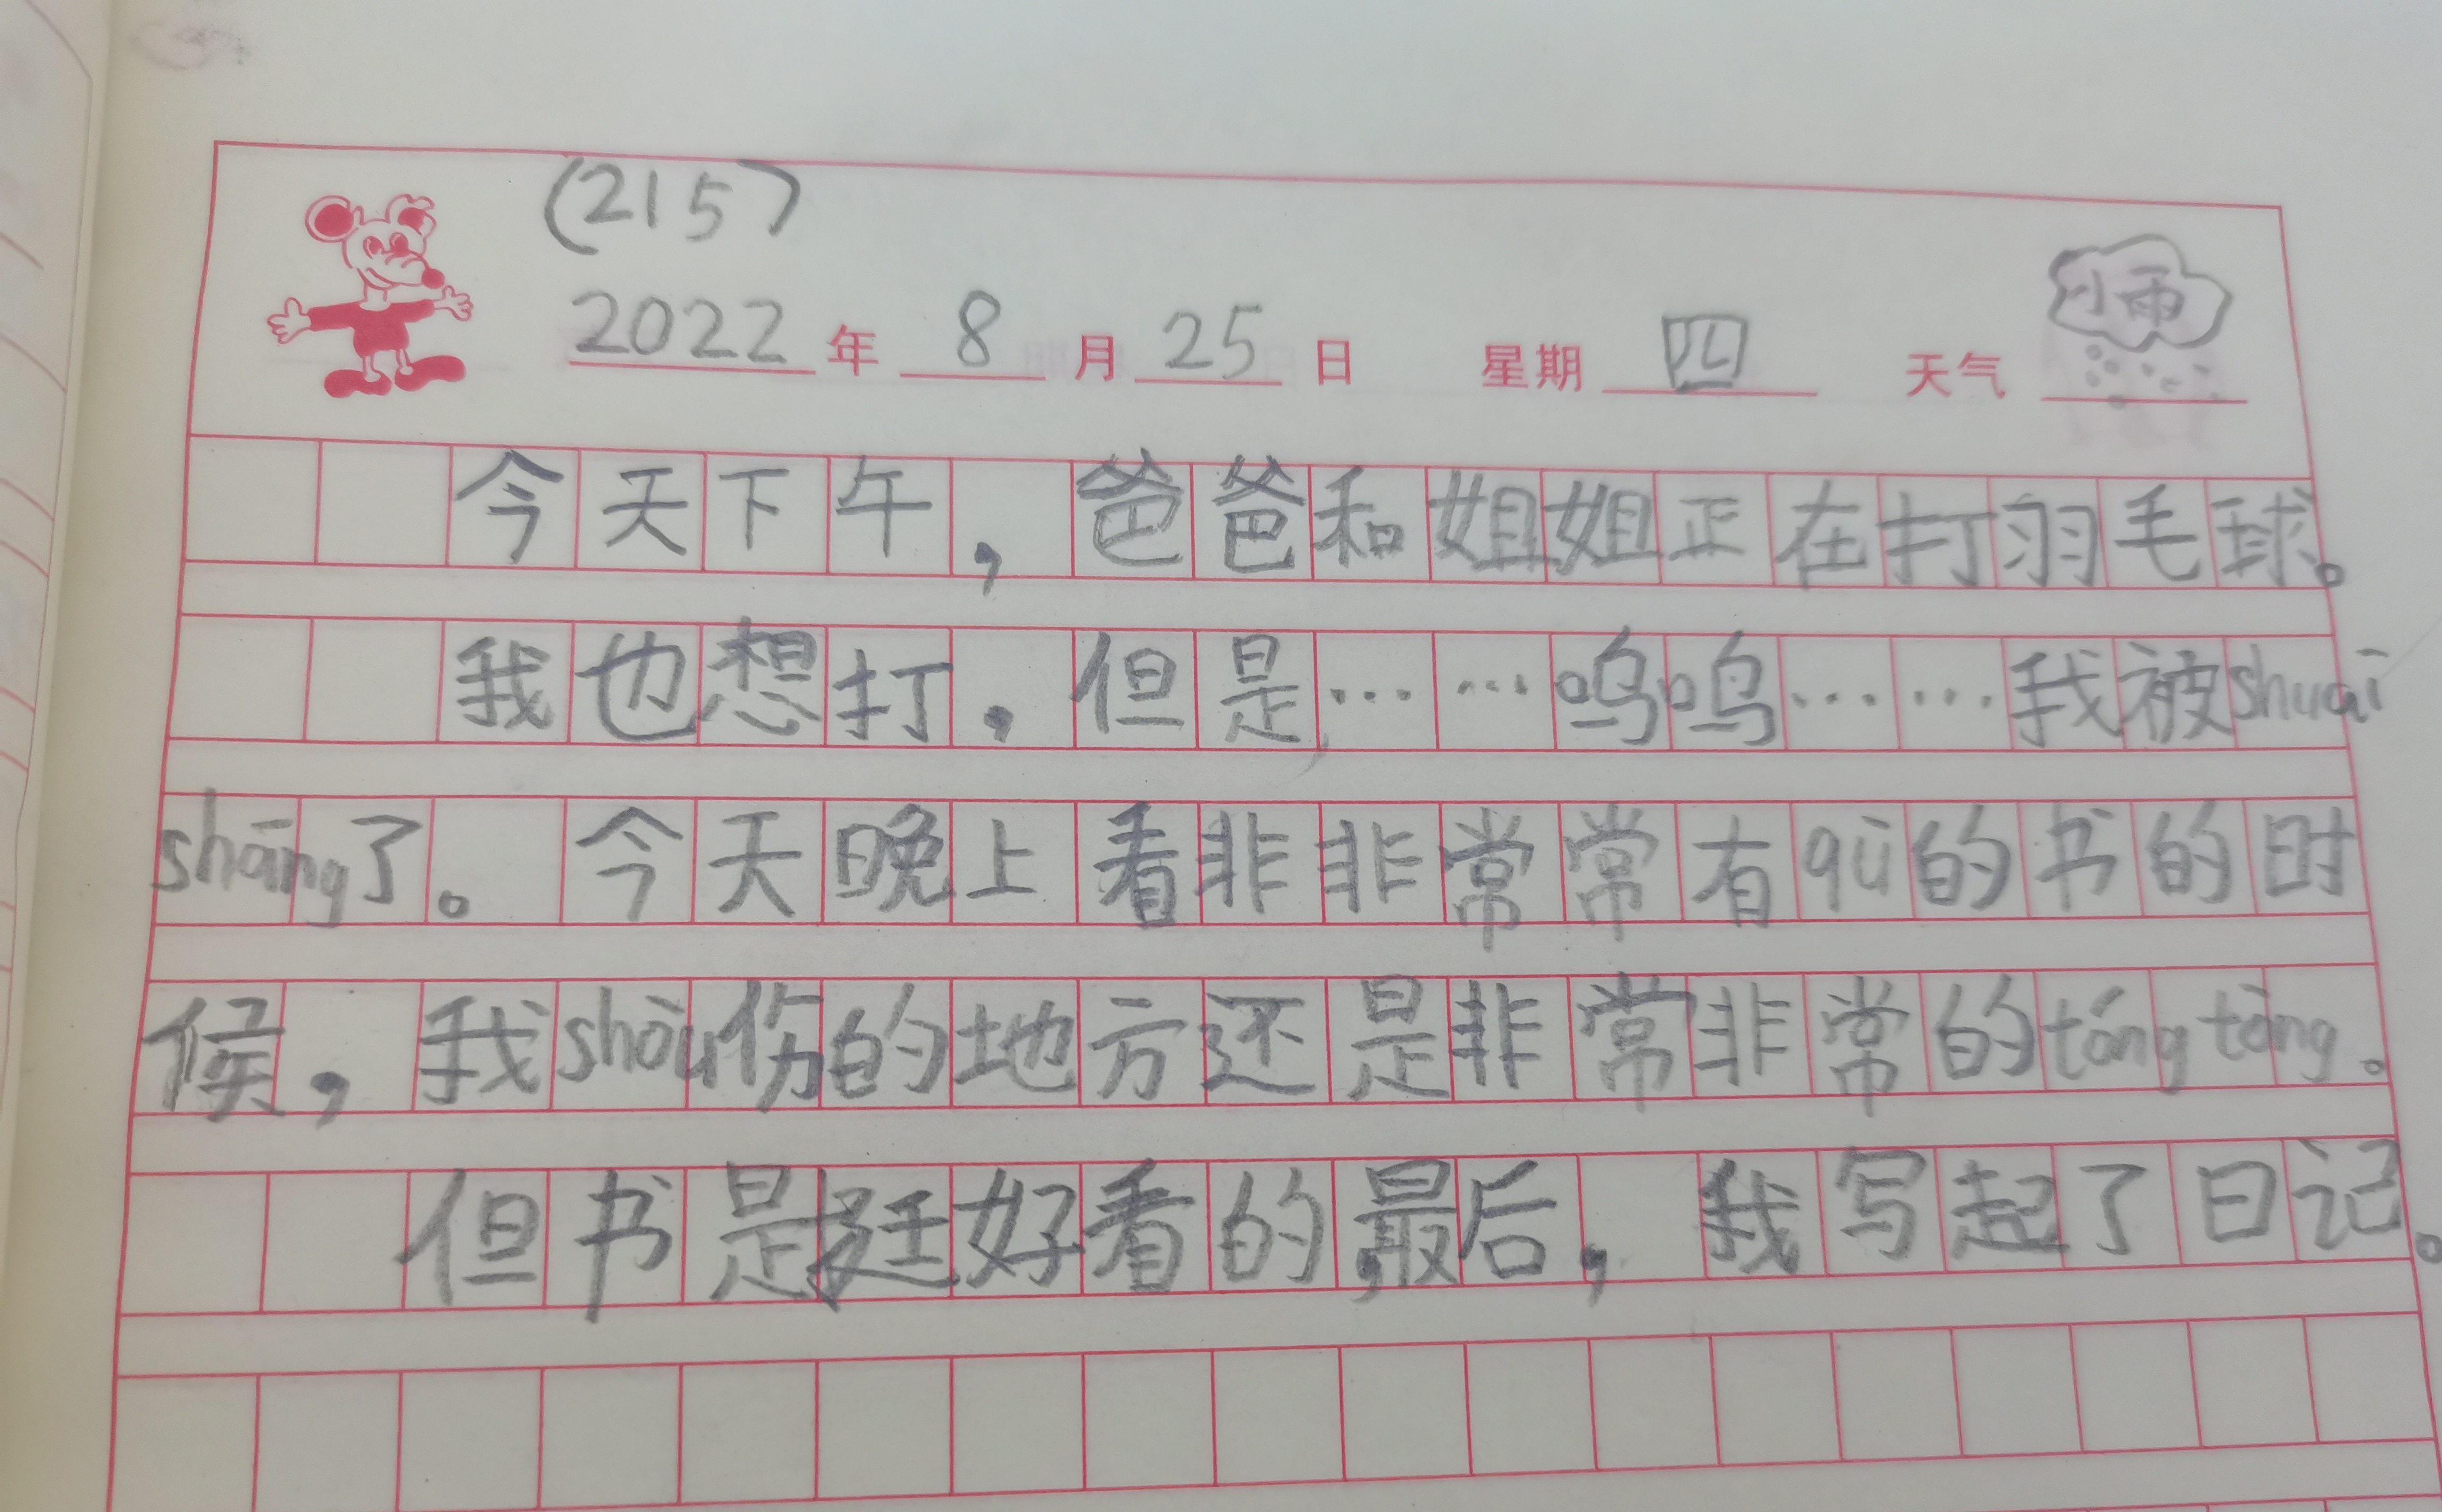 (215)
2022年8月25日 星期四 天气 小雨
今天下午，爸爸和姐姐正在打羽毛球。
我也想打，但是……呜呜……我被shuāi
shāng了。今天晚上看非非常常有qù的书的时
候，我shòu伤的地方还是非常非常的tóng tòng。
但书是挺好看的，最后，我写起了日记。